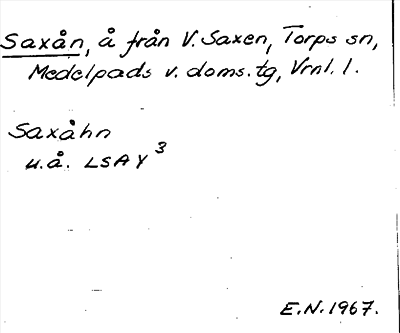 Saxån, å från V. Saxen, Torps sn,
Medelpads v. doms.tg, Vrnl. l.
Saxåhn
u.å. LSA Y³
E.N. 1967.